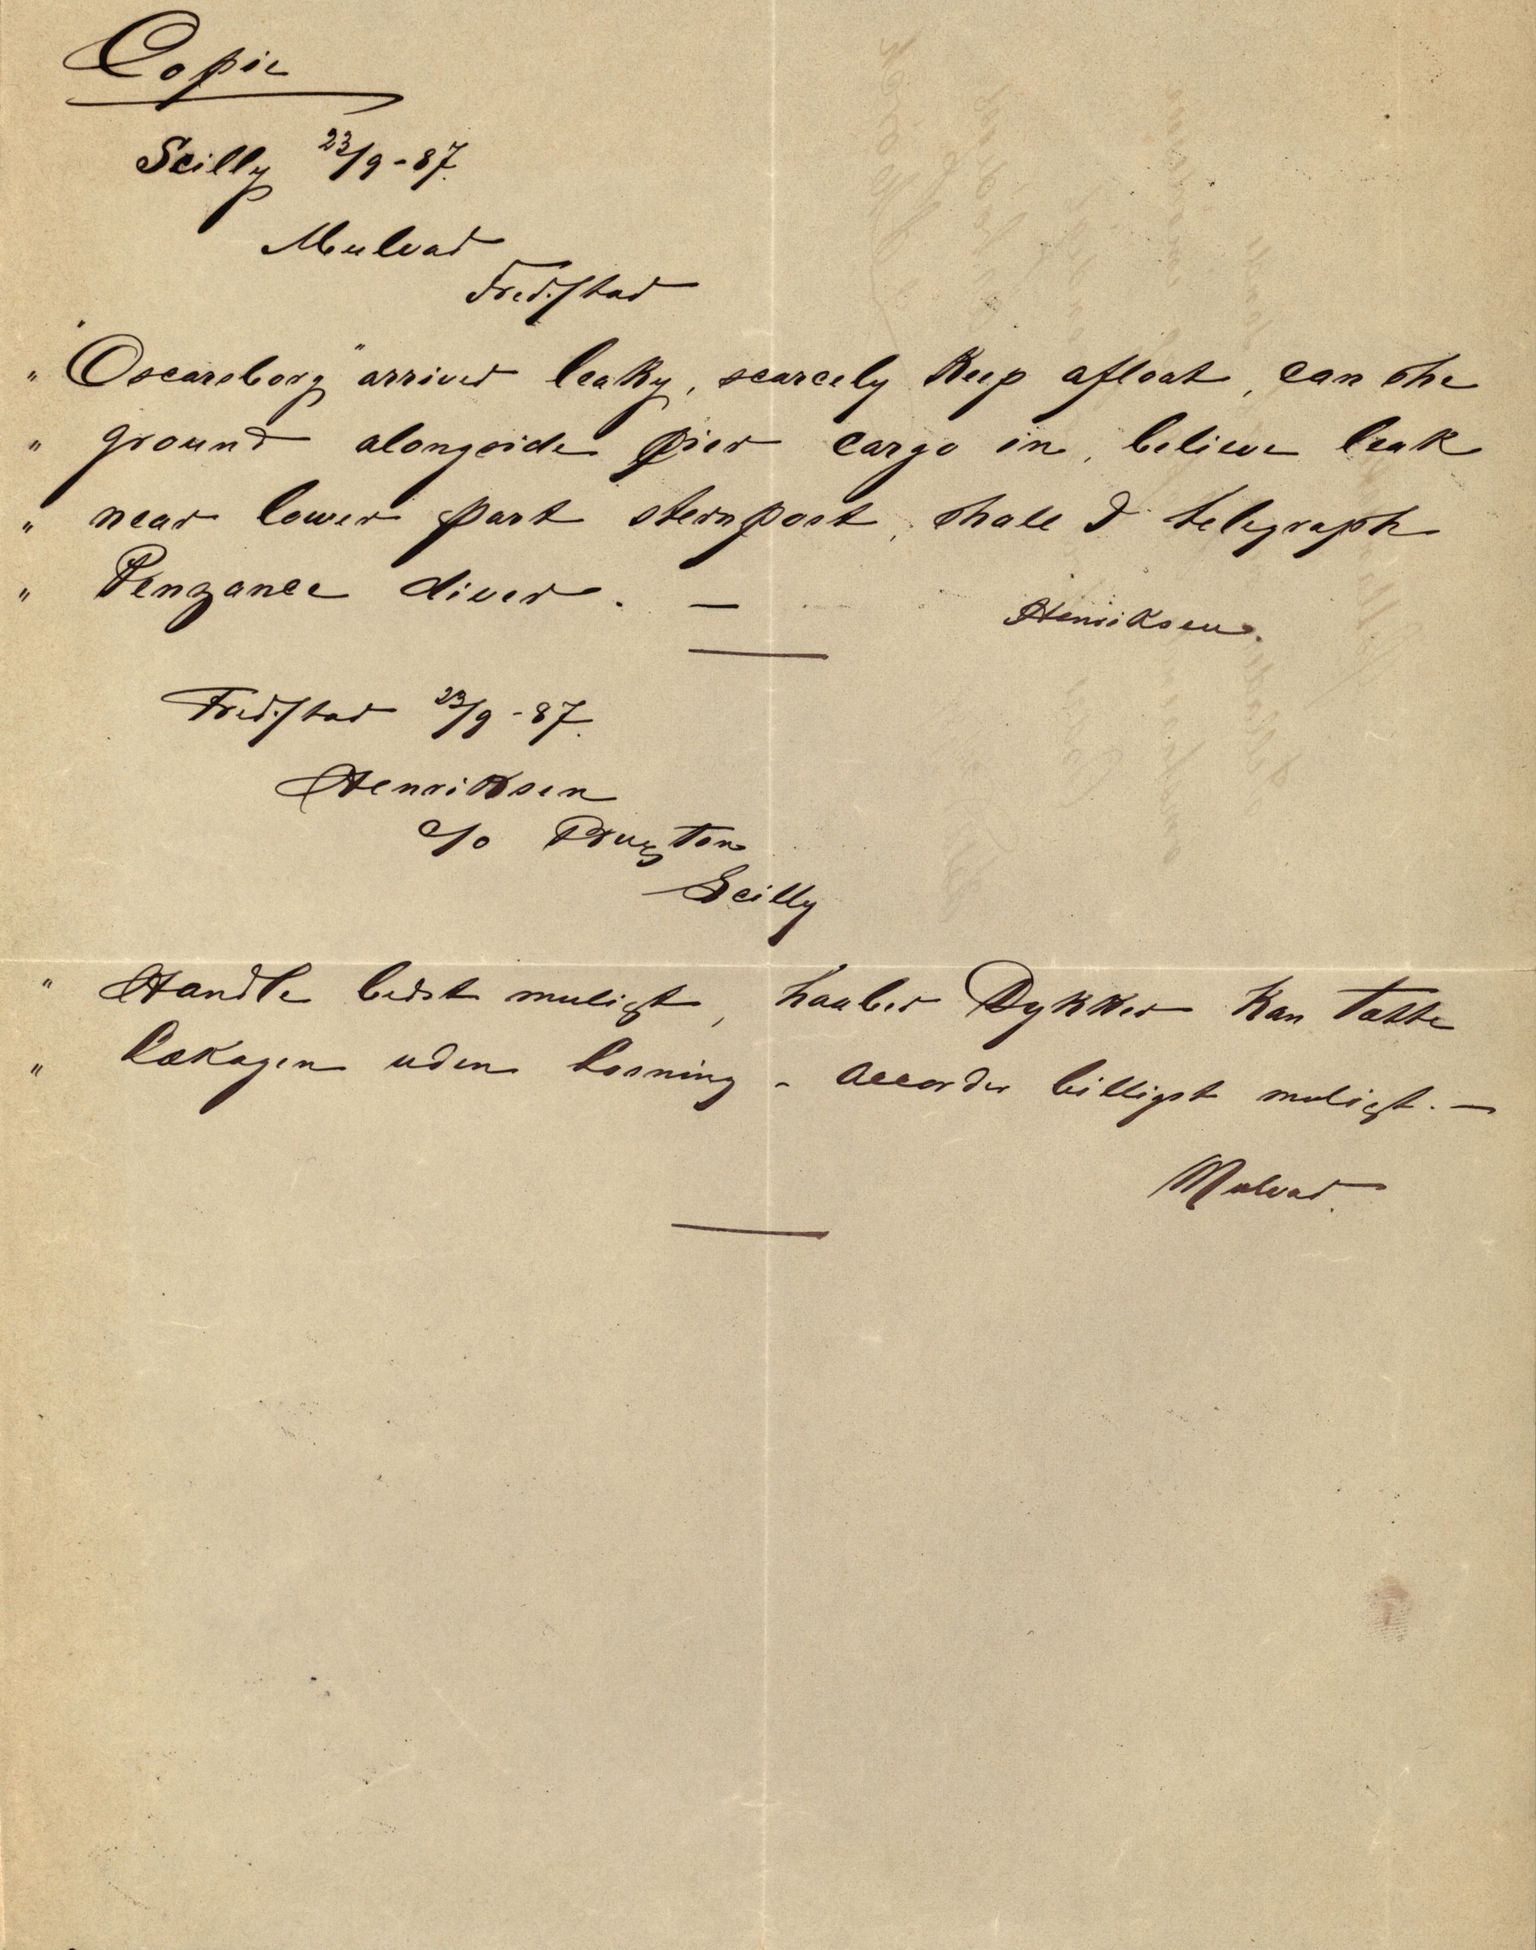 Copie
Scilly 23/9-87.
Mulvad
Fredsstad
" "Oscarsborg" arrived leaky, scarcely keep afloat, can she
" ground alongside pier cargo in, believe leak
" near lower part sternpost, shall I telegraph
" Penzance diver. —
Henriksen.
Fredsstad 23/9-87.
Henriksen
c/o
Scilly
" Handle bedst muligt, haaber Dykker kan tætte
" Lækagen uden Losning - accorder billigst muligt. —
Mulvad.